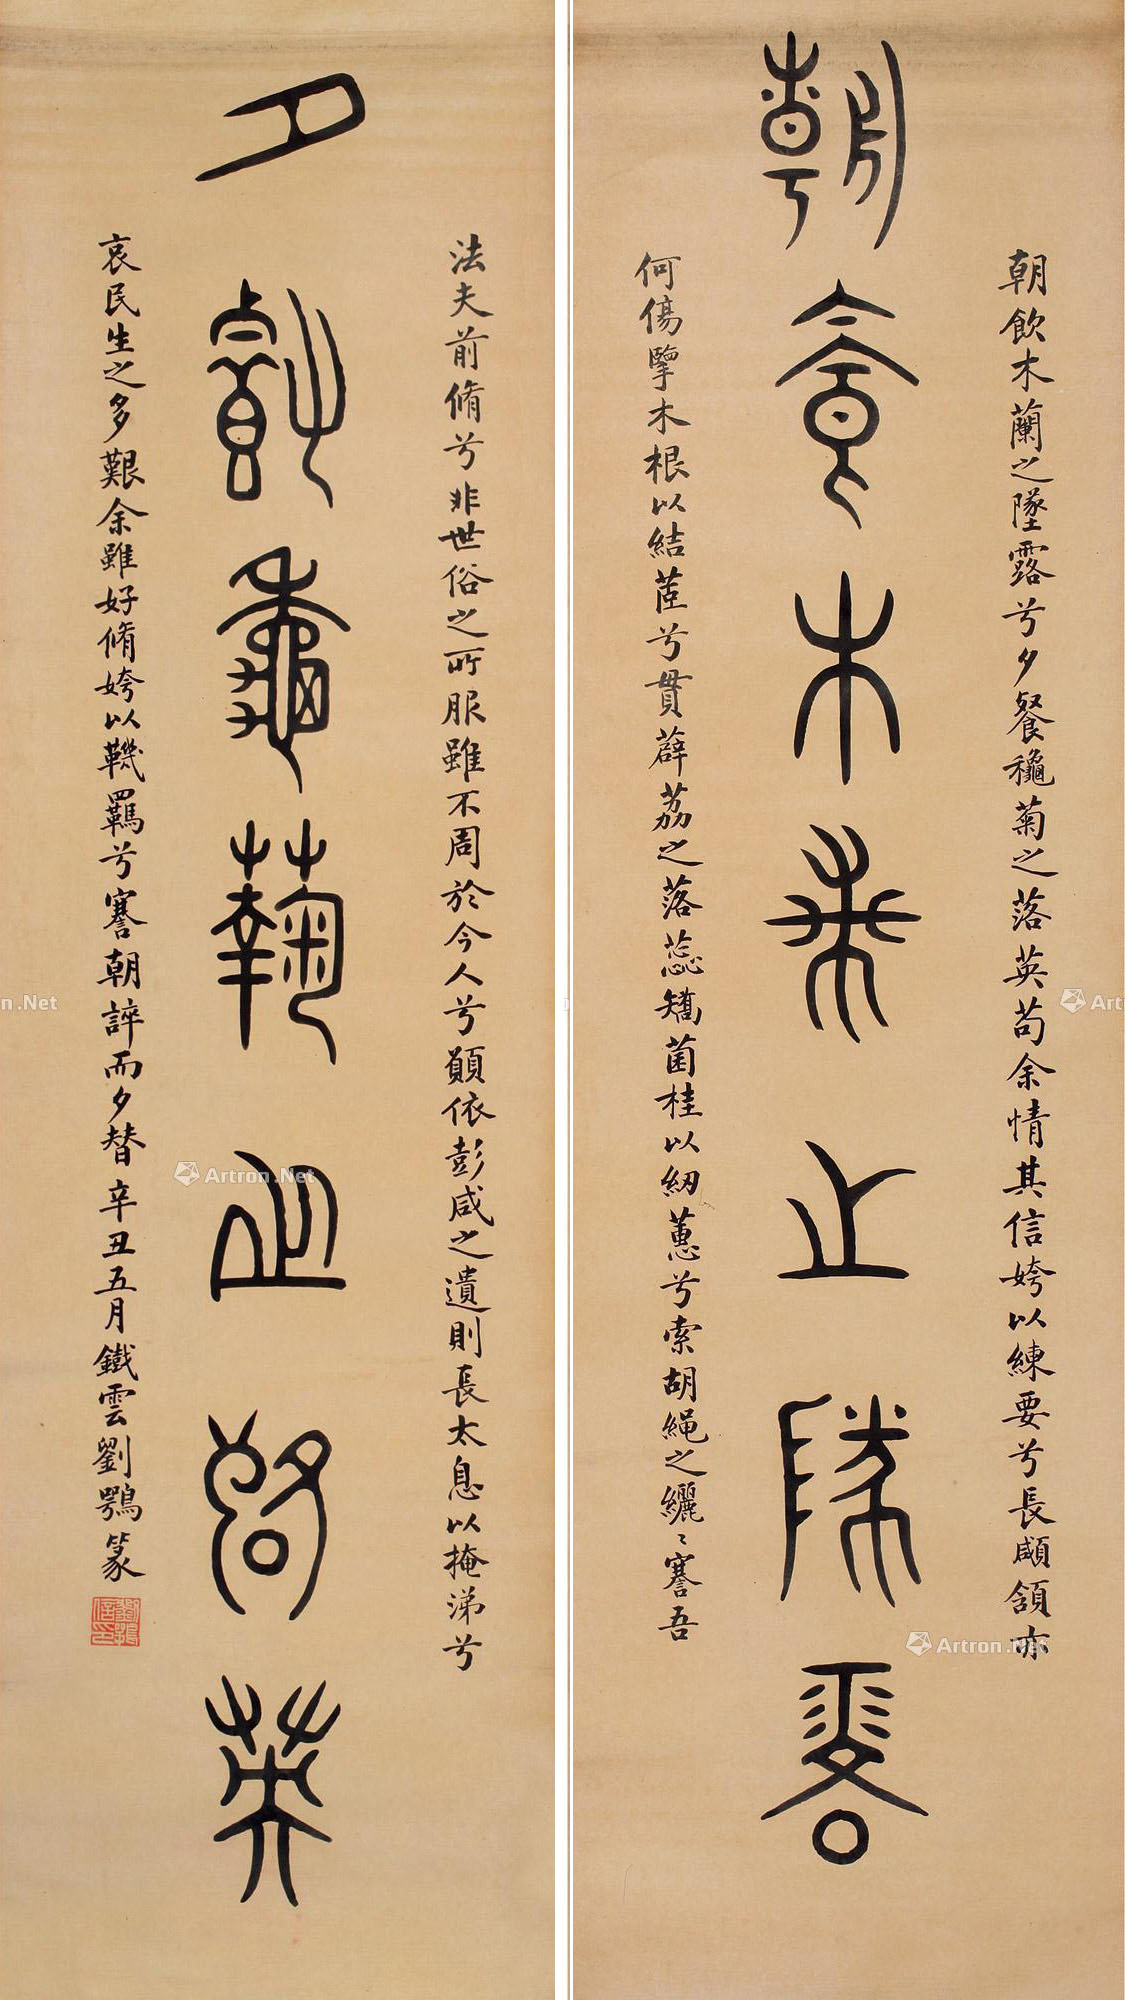 朝飲木蘭之墜露
朝飲木蘭之墜露兮夕餐龝菊之落英苟余情其信姱以練要兮長顑頷亦
何傷擥木根以結茝兮貫薜荔之落蕊矯菌桂以紉蕙兮索胡繩之纚〻謇吾
夕餐龝菊之落英
法夫前脩兮非世俗之所服雖不周於今人兮願依彭咸之遺則長太息以掩涕兮
哀民生之多艱余雖好脩姱以鞿羈兮謇朝誶而夕替辛丑五月鐵雲劉鶚篆
劉鶚信印
Artron.Net
Artron.Net